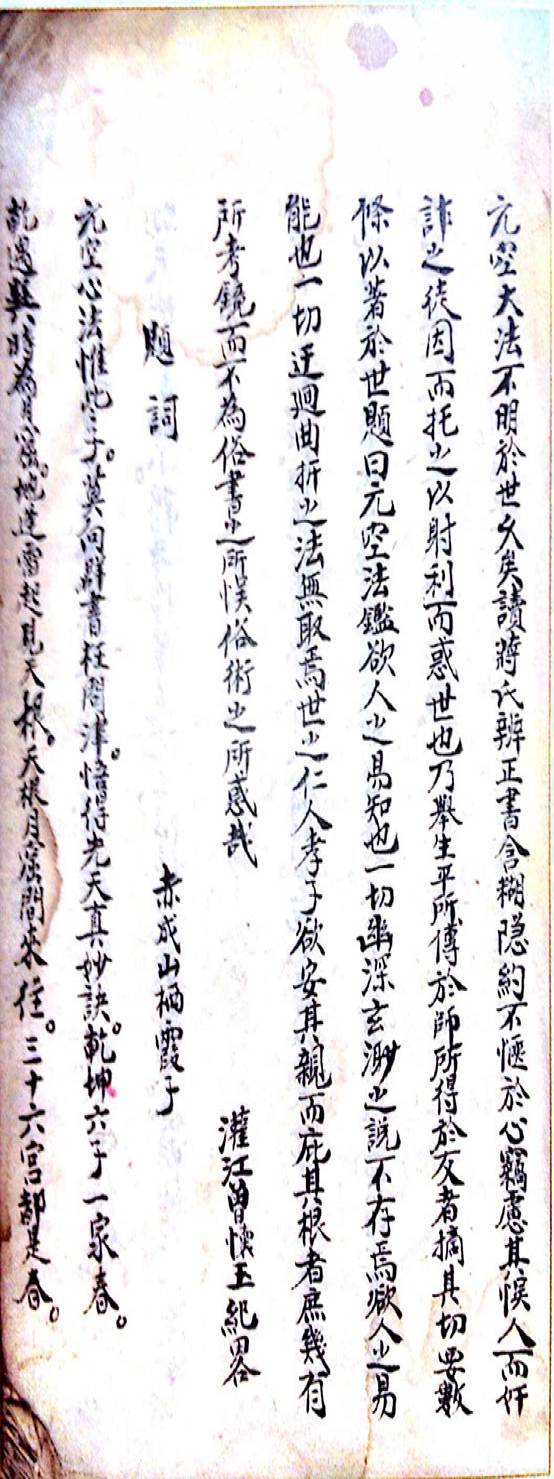 元空大法不明於世久矣讀蔣氏辨正書含糊隐約不愜於心竊慮其悞人而奸
詐之徒因而托之以射利而惑世也乃舉生平所傳於師所得於友者摘其切要數
條以著於世題曰元空法鑑欲人之易知也一切幽深玄渺之說不存焉欲人之易
能也一切迂迴曲折之法無取焉世之仁人孝子欲安其親而庇其根者庶幾有
所考鏡而不為俗書之所悞俗術之所惑哉
灌江曾懷玉紀畧
題詞
赤成山栖霞子
元空心法惟些子。莫向群書枉问津。悟得先天真妙訣。乾坤六子一家春。
乾遇巽時為月窟。地逢雷起見天根。天根月窟間來往。三十六宫都是春。